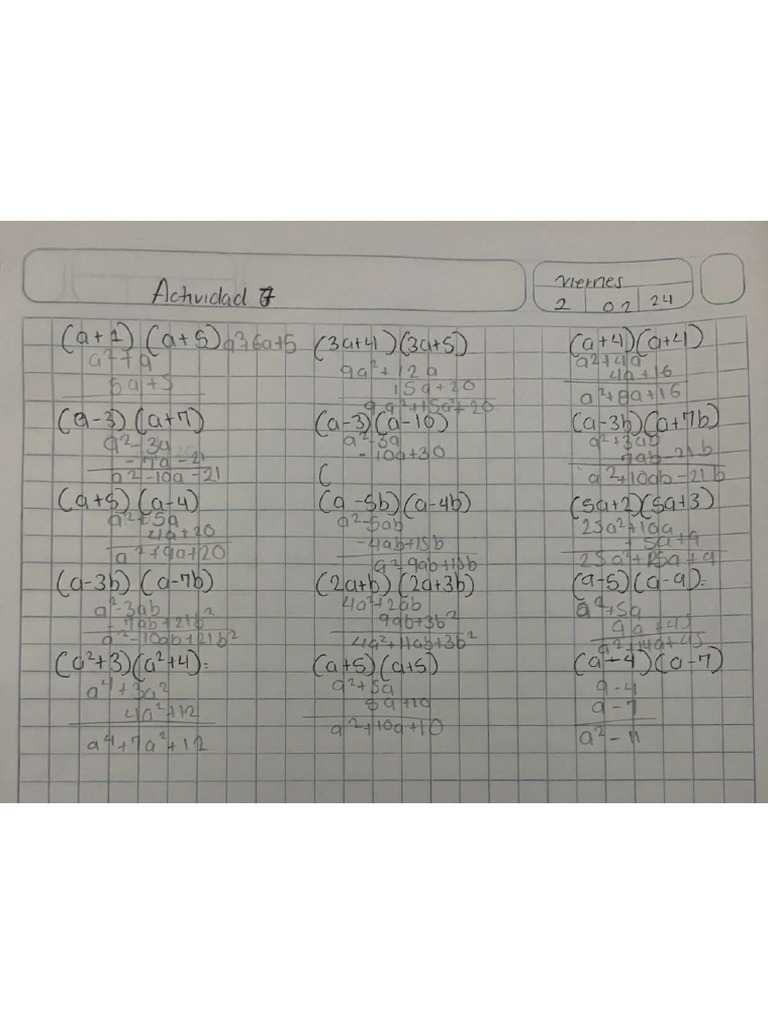 Actividad 7
Viernes
2 02 24
(a+1) (a+5) a²+6a+5
a²+a
5a+5
(3a+4)(3a+5)
9a²+12a
15a+20
9a²+15a+20
(a+4)(a+4)
a²+4a
4a+16
a²+8a+16
(a-3) (a+7)
a²-3a
-7a-21
a²-10a-21
(a-3)(a-10)
a²-3a
-10a+30
(
(a-3b)(a+7b)
a²+3ab
7ab-21b
a²+10ab-21b
(a+5) (a-4)
a²+5a
4a+20
a²+9a+20
(a-5b)(a-4b)
a²-5ab
-4ab+15b
a²-9ab+15b
(5a+2)(5a+3)
25a²+10a
+ 5a+9
25a²+15a+9
(a-3b) (a-7b)
a²-3ab
-7ab+21b²
a²-10ab+21b²
(2a+b) (2a+3b)
4a²+2ab
9ab+3b²
4a²+11ab+3b²
(a-5)(a-9):
a²+5a
9a+45
a²+14a+45
(a²+3)(a²+4):
a⁴+3a²
4a²+12
a⁴+7a²+12
(a+5)(a+5)
a²+5a
5a+10
a²+10a+10
(a-4)(a-7)
a-4
a-7
a²-11